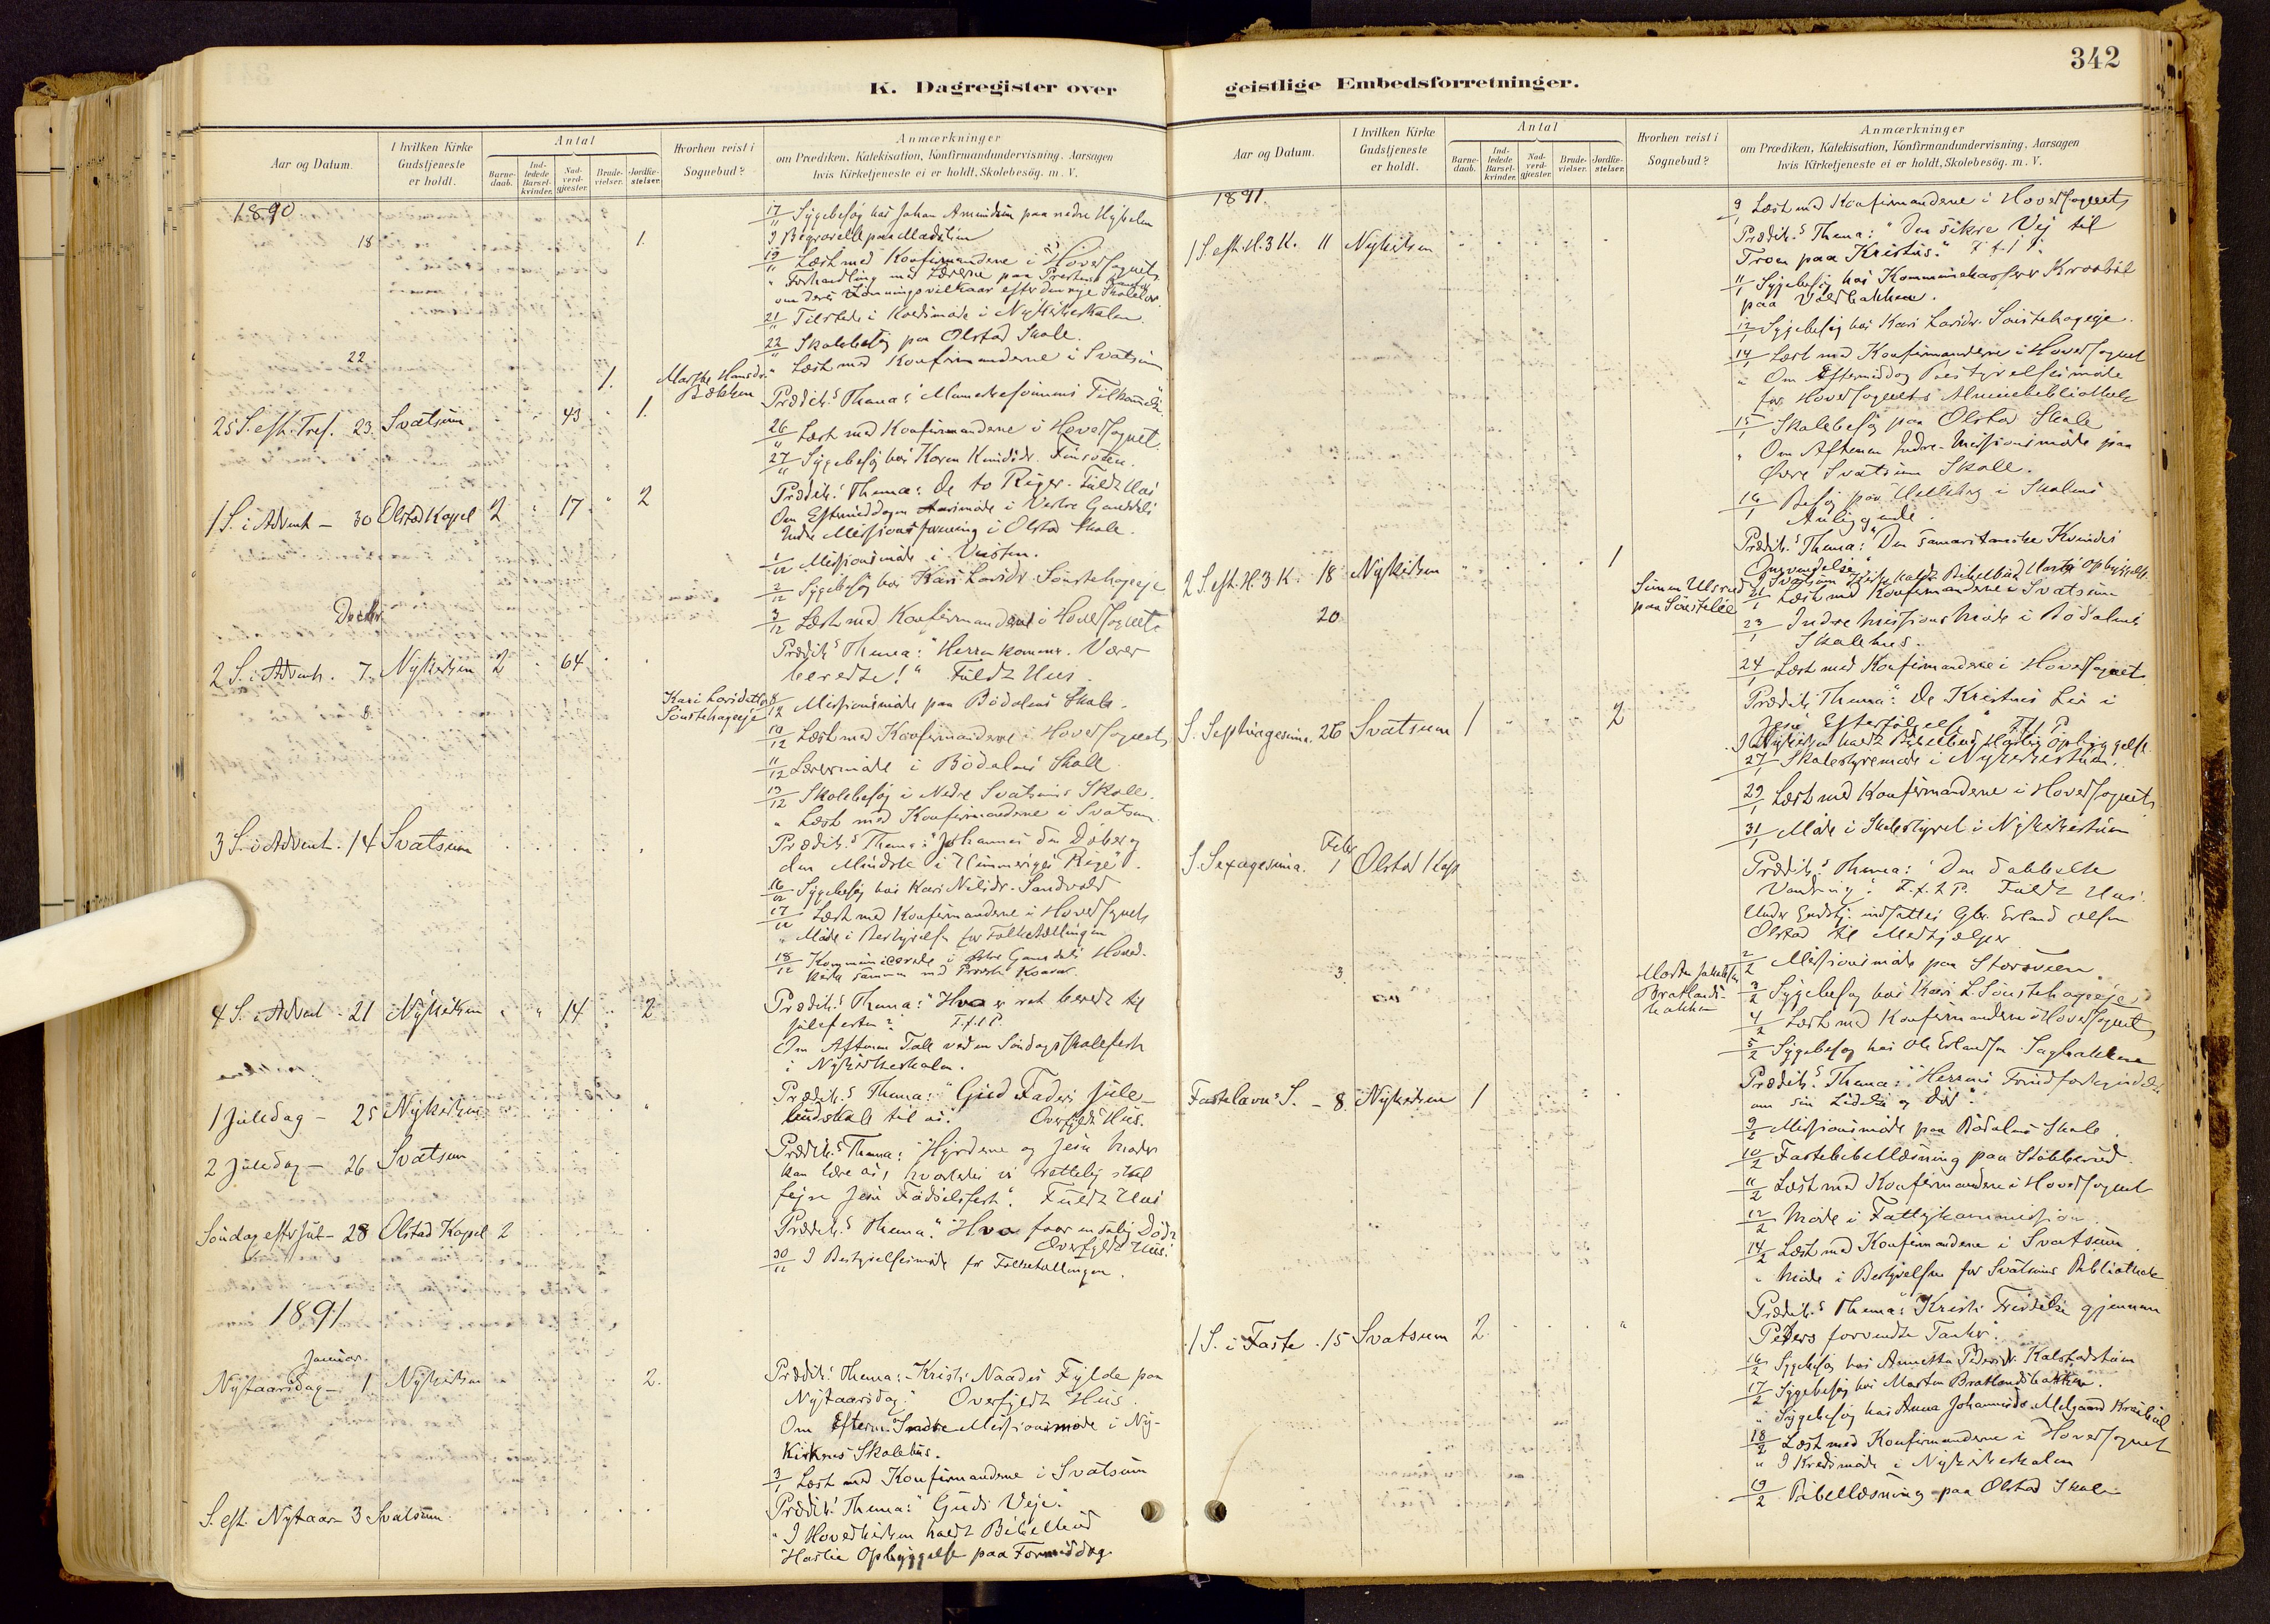 342
K. Dagregister over
geistlige Embedsforretninger.
Aar og Datum.
I hvilken Kirke
Gudstjeneste
er holdt.
Antal
Barne-
daab.
Ind-
ledede
Barsel-
kvinder.
Nad-
verd-
gjæster.
Brude-
vielser.
Jordfæ-
stelser.
Hvorhen reist i
Sognebud?
Anmærkninger
om Prædiken, Katekisation, Konfirmandundervisning, Aarsagen
hvis Kirketjeneste ei er holdt, Skolebesøg. m. V.
1890
17/11 Sygebesøg hos Johan Amundsen paa nedre
18 1. I Begravelse paa
19/11 Læst med Konfirmanderne i Hovedsognet
" Forhandling med Lærerne paa
om deres Lønningsvilkaar efter den nye Skolelov
21/11 Tilstede i Kredsmøde i Nykirkeskolen.
22/11 Skolebesøg paa Olstad Skole.
22 1. Hansdr. " Læst med Konfirmanderne i Svatsum
Bækken
25 S. eft. Tref. 23. Svatsum 43 1. Prædik. Thema:
26/11 Læst med Konfirmanderne i Hovedsognet.
27/11 Sygebesøg hos Karen
1 S. i Advent - 30 Olstad Kapel 2 17 2 Prædik. Thema: De to Riger. Fuldt Hus
Om Eftermiddagen Aarsmøde i Vestre Gausdals
Indre Missionsforening i Olstad Skole.
1/12 Missionsmøde i
2/12 Sygebesøg hos Kari Larsdr. Sønstehageeje
Decbr.
3/12 Læst med Konfirmanderne i Hovedsognet
2 S. i Advent. 7. Nykirken 2 64 Prædik. Thema: "Herren kommer. Værer
beredte!" Fuldt Hus.
8. Kari Larsdatter 8/12 Missionsmøde paa Bødalens Skole.
Sønstehageeje
10/12 Læst med Konfirmanderne i Hovedsognet
11/12 Lærermøde i Bødalens Skole
13/12 Skolebesøg i Nedre Svatsums Skole.
" Læst med Konfirmanderne i Svatsum
3 S. i Advent. 14 Svatsum Prædik. Thema: "Johannes den Døber og
den Mindste i Himmeriges Rige".
16/12 Sygebesøg hos Kari Nilsdr.
17/12 Læst med Konfirmanderne i Hovedsognet
" Møde i Bestyrelsen for Folketællingen
18/12 i Østre Gausdals Hoved-
kirke sammen med
4 S. i Advent - 21 Nykirken " " 14 " 2 Prædik. Thema: "Hvo er ret beredt til
Julefesten?" F.f.l.P.
Om Aftenen Tale ved en Søndagsskolefest
i Nykirkeskolen.
1 Juledag - 25 Nykirken Prædik. Thema: "Gud Faders Jule-
budskab til os." Overfyldt Hus.
2 Juledag - 26 Svatsum Prædik. Thema: "Hyrderne og Jesu Moder
kan lære os, hvorledes vi rettelig skal
fejre Jesu Fødselsfest". Fuldt Hus
Søndag efter Jul - 28 Olstad Kapel 2 Prædik. Thema: "Hvo faar en salig Død?
Overfyldt Hus.
30/12 I Bestyrelsesmøde for Folketællingen.
1891
Januar.
Nytaarsdag - 1. Nykirken 2. Prædik. Thema: "Kristi Naades Fylde paa
Nytaarsdag." Overfyldt Hus.
Om Efterm. Indre Missionsmøde i Ny-
kirkens Skolehus.
3/1 Læst med Konfirmanderne i Svatsum
S. eft. Nytaar - 3 Svatsum Prædik. Thema: "Guds Veje."
" I Hovedkirken holdt Bibelbud
Haslie Opbyggelse paa Formiddag.
Aar og Datum.
I hvilken Kirke
Gudstjeneste
er holdt.
Antal
Barne-
daab.
Ind-
ledede
Barsel-
kvinder.
Nad-
verd-
gjæster.
Brude-
vielser.
Jordfæ-
stelser.
Hvorhen reist i
Sognebud?
Anmærkninger
om Prædiken, Katekisation, Konfirmandundervisning, Aarsagen
hvis Kirketjeneste ei er holdt, Skolebesøg. m. V.
1891.
9/1 Læst med Konfirmanderne i Hovedsognet
1 S. eft. H.3K. 11 Nykirken Prædik. Thema: "Den sikre Vej til
Troen paa Kristus."
11/1 Sygebesøg hos Kommunekasserer
paa
12/1 Sygebesøg hos Kari Larsdr. Sønstehageeje.
14/1 Læst med Konfirmanderne i Hovedsognet
" Om Eftermiddag Bestyrelsesmøde
for Hovedsognets Almuebibliothek
15/1 Skolebesøg paa Olstad Skole
" Om Aftenen Indre-Missionsmøde paa
Øvre Svatsum Skole.
16/1 Besøg paa i Skolens
Anliggende
2 S. eft. H.3K. 18 Nykirken 1 Prædik. Thema: "Den samaritanske Kvindes
Omvendelse"
I Svatsum Kirke holdt Bibelbud Haslie Opbyggelse.
20 Simen Ulsrud 21/1 Læst med Konfirmanderne i Svatsum
paa
23/1 Indre Missions Møde i Bødalens
Skolehus.
24/1 Læst med Konfirmanderne i Hovedsognet
S. Septuagesima. 26 Svatsum 1 2 Prædik. Thema: "De Kristnes Liv i
Jesu Efterfølgelse"
I Nykirken holdt Bibelbud Haslie Opbyggelse
27/1 Skolestyremøde i Nykirkestuen.
29/1 Læst med Konfirmanderne i Hovedsognet
31/1 Møde i Skolestyret i Nykirkestuen
Febr.
S. Sexagesima. 1 Olstad Kap. Prædik. Thema: "Den dobbelte
F.f.l.P. Fuldt Hus.
Under Gudstj. indsattes Gbr. Erland Olsen
Olstad til Medhjælper
2/2 Missionsmøde paa
3 Marten
Bratlands-
bakken
3/2 Sygebesøg hos Kari L. Sønstehageeje
4/2 Læst med Konfirmanderne i Hovedsognet
5/2 Sygebesøg hos Ole Erlandsen Sagbakken
Fastelavns S. - 8. Nykirken 1 Prædik. Thema: "Herrens
om sin Lidelse og Død".
9/2 Missionsmøde paa Bødalens Skole.
10/2 Fastebibellæsning paa
11/2 Læst med Konfirmanderne i Hovedsognet
12/2 Møde i Fattigkommission
14/2 Læst med Konfirmanderne i Svatsum.
" Møde i Bestyrelsen for Svatsums Bibliothek
1 S. i Faste. 15 Svatsum 2 " Prædik. Thema: "Kristi Fristelse gjennem
Peders forvendte Tanker".
16/2 Sygebesøg hos Annette Pedersdr. Kalstadstuen
17/2 Sygebesøg hos Marten Bratlandsbakken.
" Sygebesøg hos Anna Johannesdr.
18/2 Læst med Konfirmanderne i Hovedsognet
" I Kredsmøde i Nykirkeskolen
19/2 Bibellæsning paa Olstad Skole